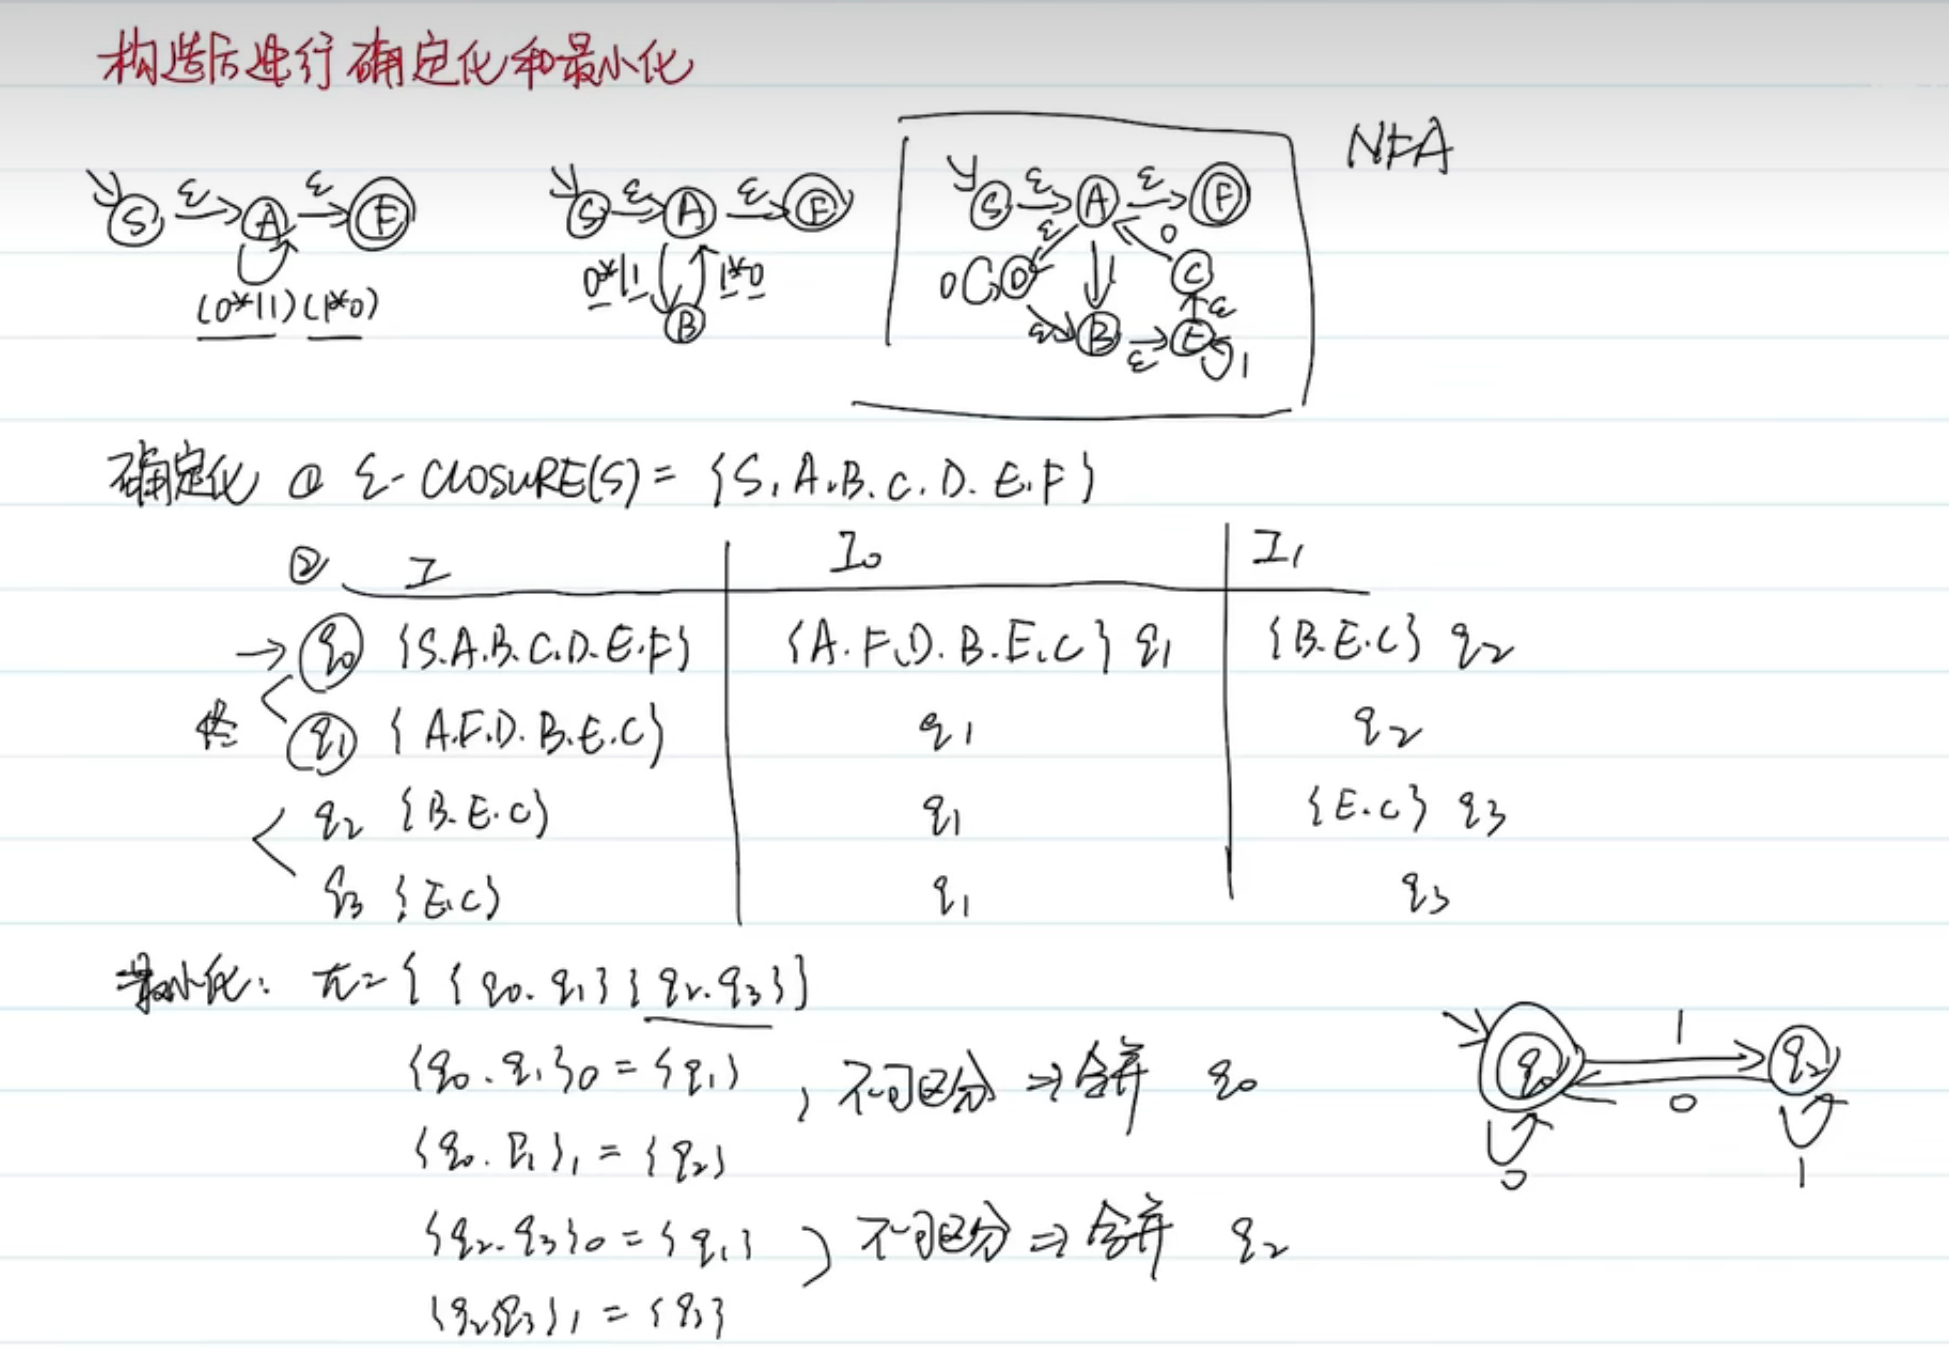 构造后进行确定化和最小化
S ε A ε F
(0*|1)(1*0)
S ε A ε F
0*|1 1*0
B
NFA
S ε A ε F
ε 0
0 D 1 C
ε B ε E ε 1
确定化 ① ε-CLOSURE(S) = {S.A.B.C.D.E.F}
② I I₀ I₁
→ q₀ {S.A.B.C.D.E.F} {A.F.D.B.E.C} q₁ {B.E.C} q₂
终 q₁ {A.F.D.B.E.C} q₁ q₂
q₂ {B.E.C} q₁ {E.C} q₃
q₃ {E.C} q₁ q₃
最小化: π = {{q₀.q₁}{q₂.q₃}}
{q₀.q₁}₀ = {q₁} , 不可区分 ⇒ 合并 q₀
{q₀.q₁}₁ = {q₂}
{q₂.q₃}₀ = {q₁} 不可区分 ⇒ 合并 q₂
{q₂q₃}₁ = {q₃}
q₀ 1 q₂
0
0 1